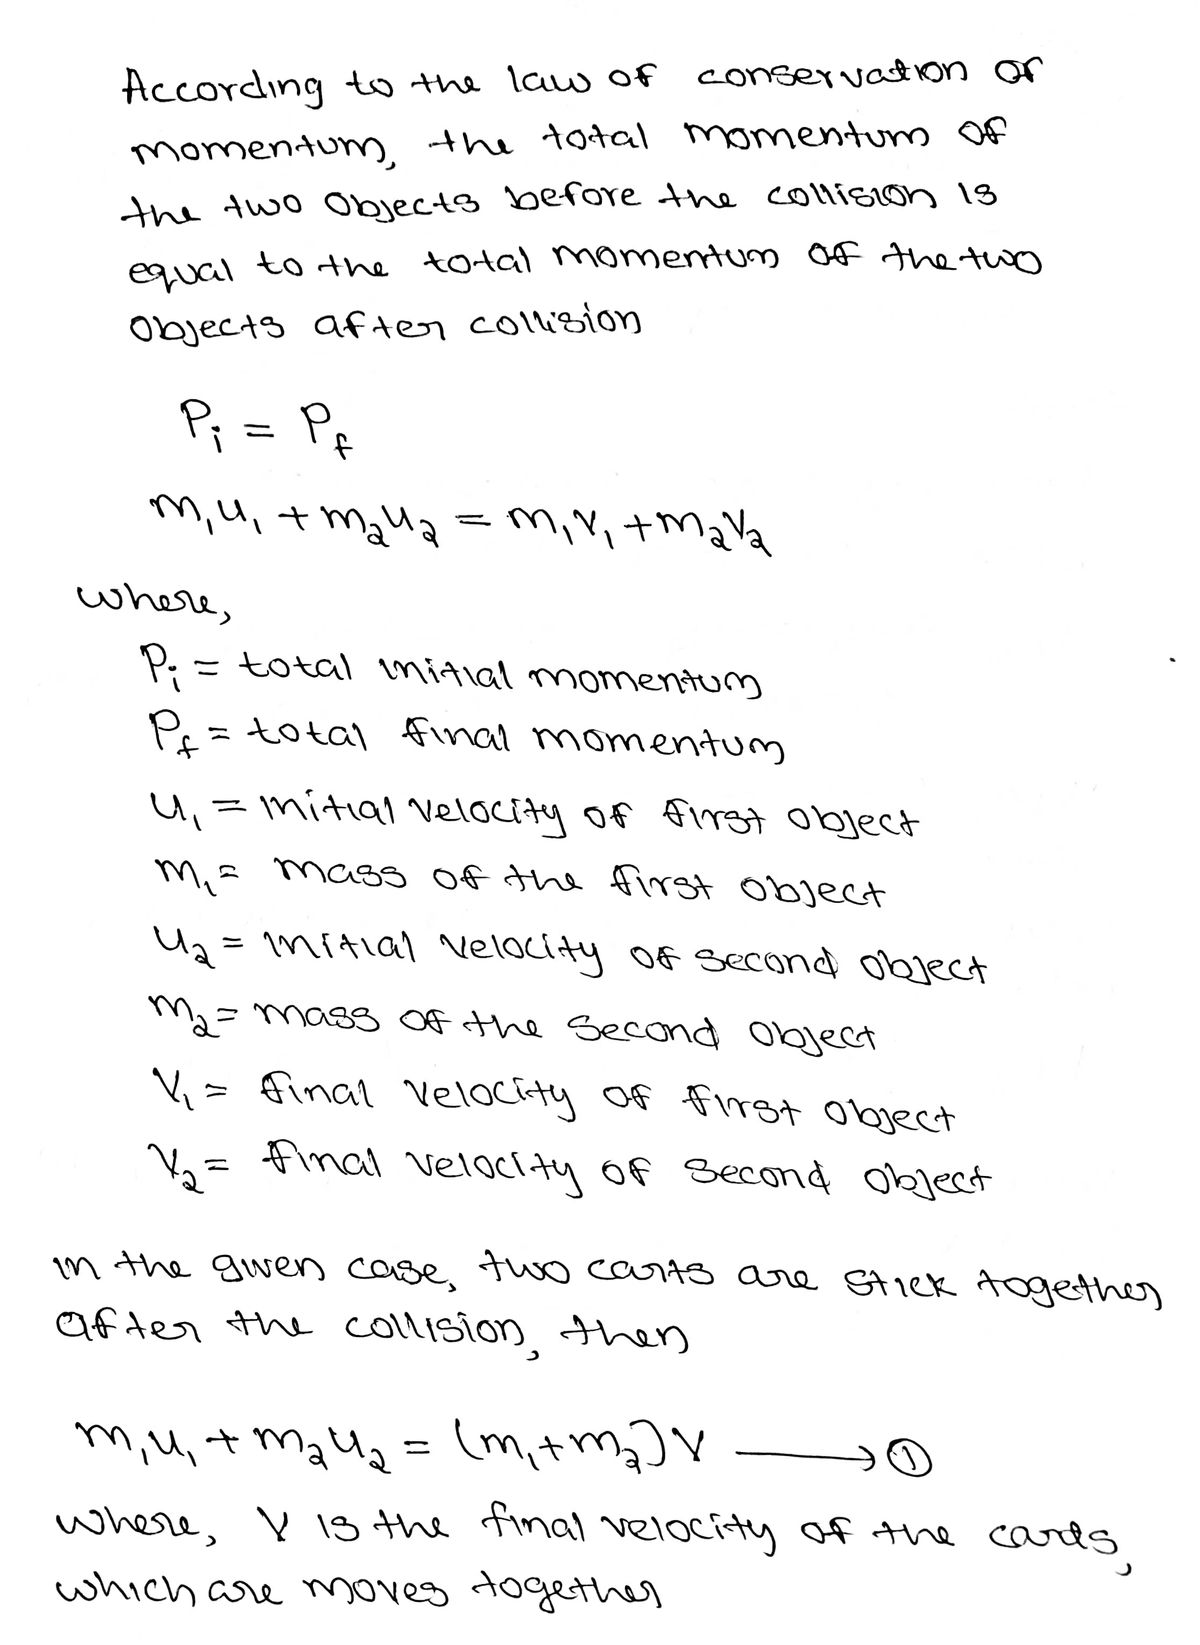 According to the law of conservation of
momentum, the total momentum of
the two objects before the collision is
equal to the total momentum of the two
objects after collision
Pᵢ = P_f
m₁u₁ + m₂u₂ = m₁v₁ + m₂v₂
where,
Pᵢ = total initial momentum
P_f = total final momentum
u₁ = initial velocity of first object
m₁ = mass of the first object
u₂ = initial velocity of second object
m₂ = mass of the second object
v₁ = final velocity of first object
v₂ = final velocity of second object
in the given case, two carts are stick together
after the collision, then
m₁u₁ + m₂u₂ = (m₁+m₂)v ⟶ ①
where, v is the final velocity of the cards,
which are moves together